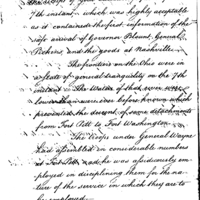 7th instant - which was highly acceptable
as it contained the first information of the
safe arrival of Governor Blount, General
Pickens, and the goods at Nashville.
The frontiers on the Ohio were in
a state of general tranquility on the 7th
instant. The Waters of that were
lower than were ever before known which
prevented the descent of some detachments
from Fort Pitt to Fort Washington.
The troops under General Wayne
had assembled in considerable numbers
at Fort Pitt and he was assiduously em-
ployed in disciplining them for the na-
ture of the service on which they are to
be employed.